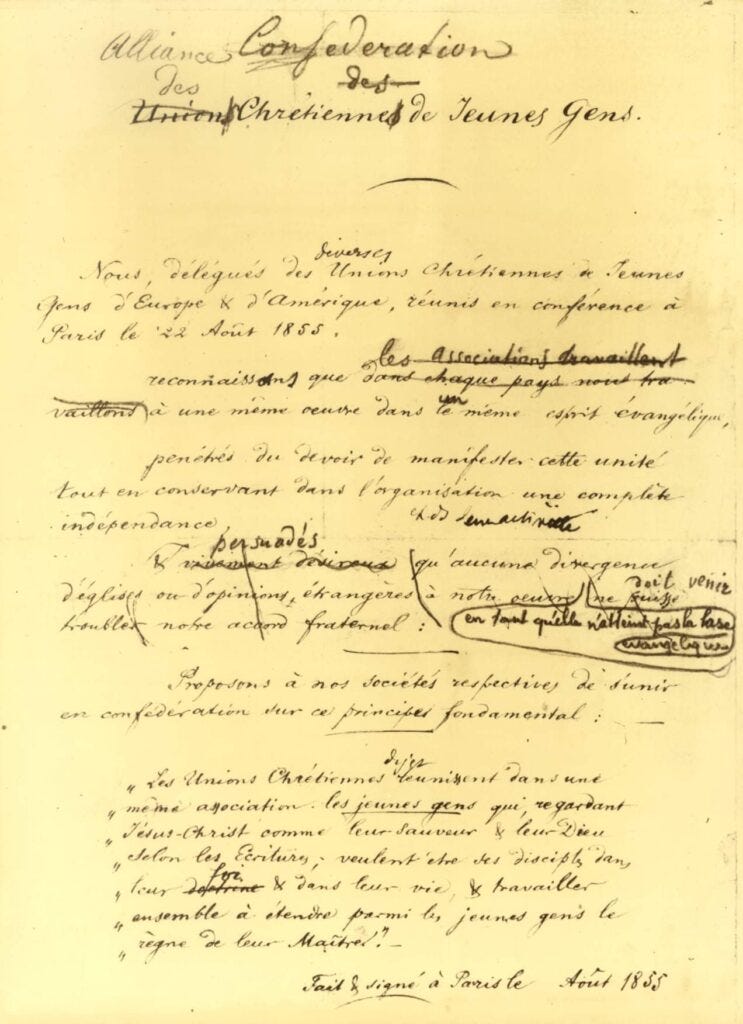 Alliance Confédération
des des
Unions Chrétiennes de Jeunes Gens.
diverses
Nous, délégués des Unions Chrétiennes de Jeunes
Gens d'Europe & d'Amérique, réunis en conférence à
Paris le 22 Août 1855.
les associations travaillent
reconnaissons que dans chaque pays nous tra-
vaillons à une même oeuvre dans le même esprit évangélique,
un
pénétrés du devoir de manifester cette unité
tout en conservant dans l'organisation une complète
indépendance
persuadés
& vivement désireux qu'aucune divergence
d'églises ou d'opinions, étrangères à notre oeuvre ne puisse
doit venir
troubler notre accord fraternel :
en tant qu'elle n'atteint pas la base
evangelique
Proposons à nos sociétés respectives de s'unir
en confédération sur ce principes fondamental :
" Les Unions Chrétiennes réunissent dans une
" même association les jeunes gens qui, regardant
" Jésus-Christ comme leur sauveur & leur Dieu
" selon les Ecritures, veulent être ses disciples dans
foi
" leur doctrine & dans leur vie, & travailler
" ensemble à étendre parmi les jeunes gens le
" règne de leur Maître." -
Fait & signé à Paris le Août 1855